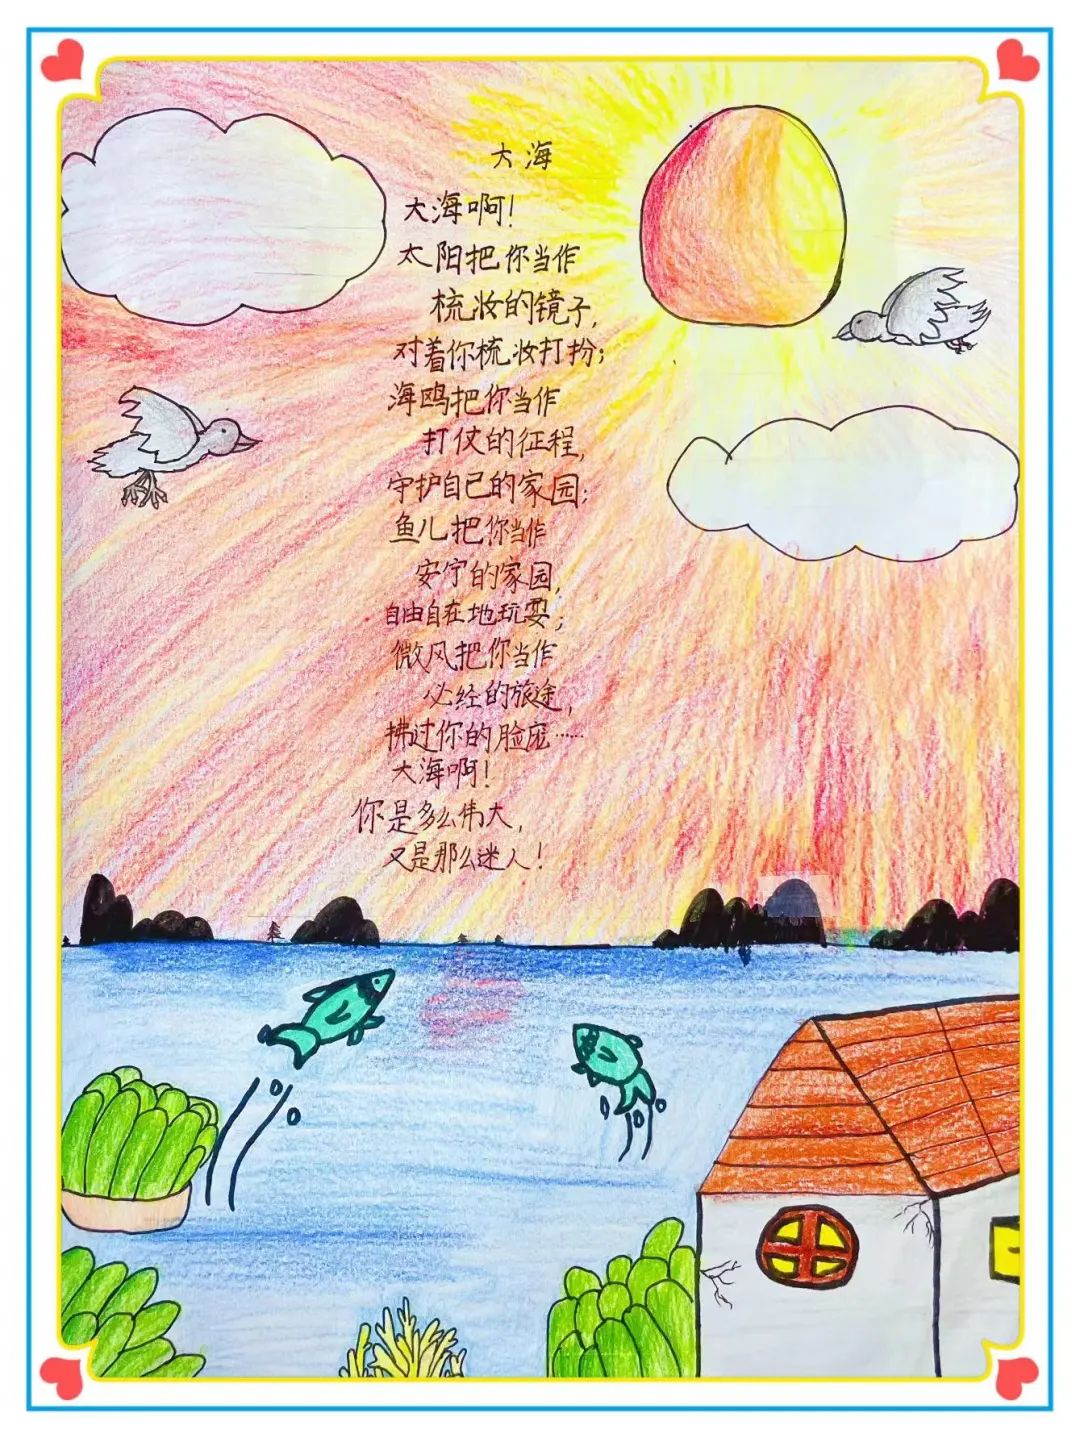 大海
大海啊！
太阳把你当作
梳妆的镜子，
对着你梳妆打扮；
海鸥把你当作
打仗的征程，
守护自己的家园；
鱼儿把你当作
安宁的家园，
自由自在地玩耍；
微风把你当作
必经的旅途，
拂过你的脸庞……
大海啊！
你是多么伟大，
又是那么迷人！